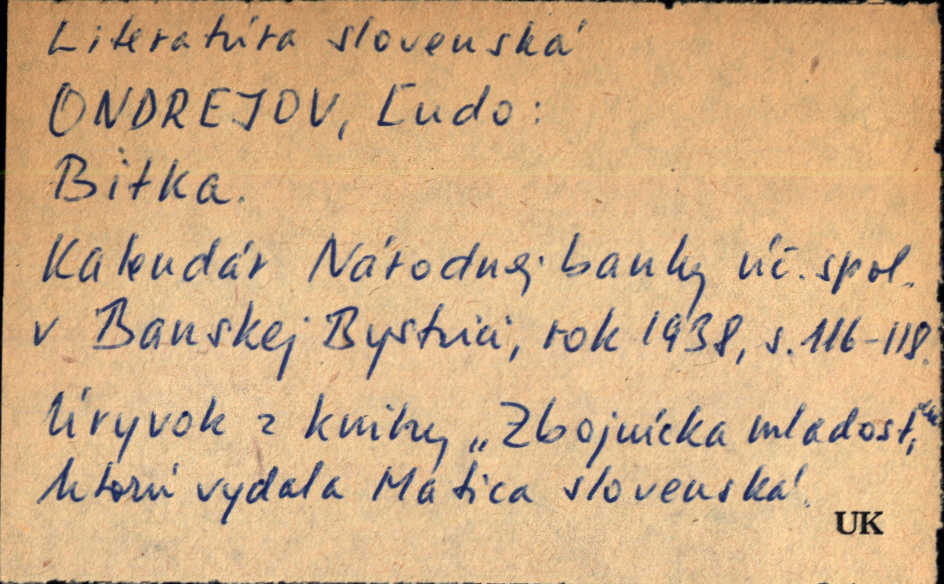 Literatúra slovenská
ONDREJOV, Ľudo:
Bitka.
Kalendár Národnej banky úč. spol.
v Banskej Bystrici, rok 1938, s. 116-118.
Úryvok z knihy „Zbojnícka mladosť,“
ktorú vydala Matica slovenská.
UK